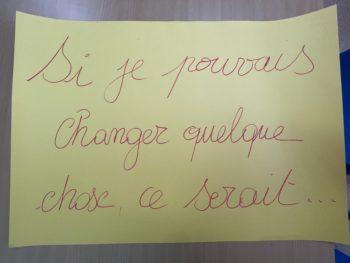 Si je pouvais
changer quelque
chose, ce serait...